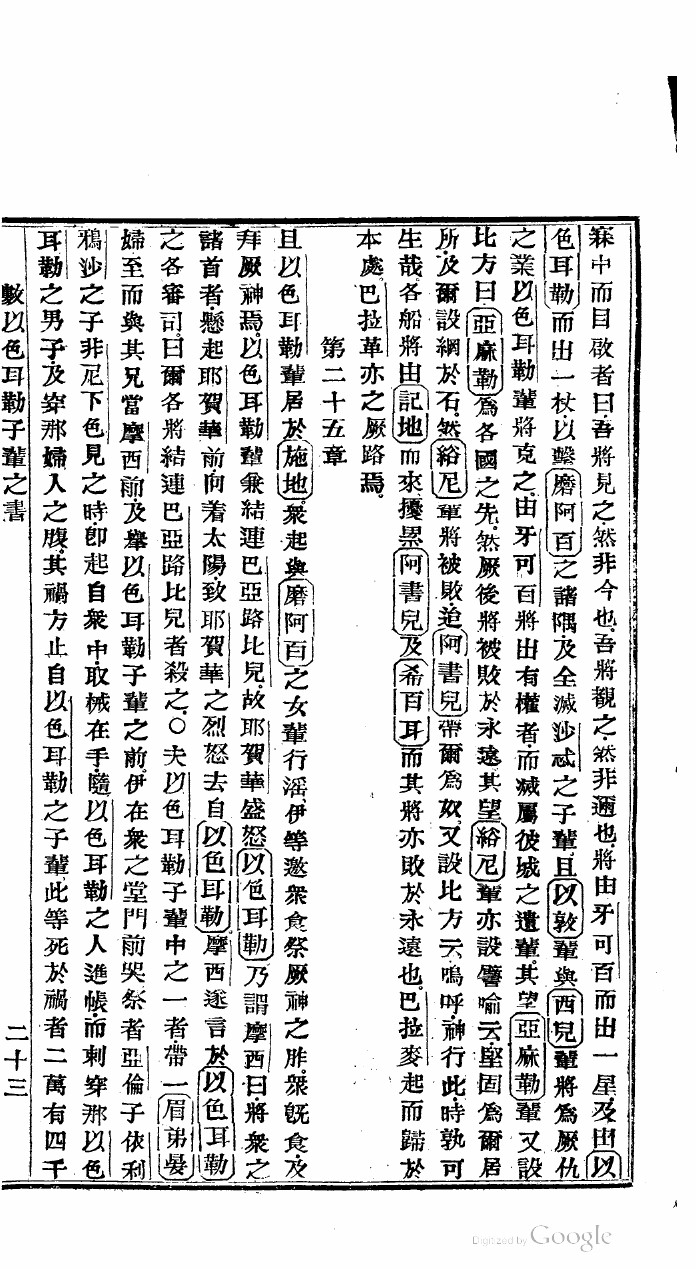 寐中而目啟者曰吾將見之然非今也吾將觀之然非邇也將由牙可百而出一星及由以
色耳勒而出一杖以繫磨阿百之諸隅及全滅沙忒之子輩且以敦輩與西兒輩將為厥仇
之業以色耳勒輩將克之由牙可百將出有權者而滅厲彼城之遺輩其望亞麻勒輩又設
比方曰亞麻勒為各國之先然厥後將被敗於永遠其望紿尼輩亦設譬喻云堅固為爾居
所及爾設網於石然紿尼輩將被敗迨阿書兒帶爾為奴又設比方云嗚呼神行此時孰可
生哉各船將由記地而來擾累阿書兒及希百耳而其將亦敗於永遠也巴拉麥起而歸於
本處巴拉革亦之厥路焉
第二十五章
且以色耳勒輩居於施地衆起與磨阿百之女輩行滛伊等邀衆食祭厥神之胙衆既食及
拜厥神焉以色耳勒輩兼結連巴亞路比兒故耶賀華盛怒以色耳勒乃謂摩西曰將衆之
諸首者懸起耶賀華前向着太陽致耶賀華之烈怒去自以色耳勒摩西遂言於以色耳勒
之各審司曰爾各將結連巴亞路比兒者殺之○夫以色耳勒子輩中之一者帶一眉弟晏
婦至而與其兄當摩西前及舉以色耳勒子輩之前伊在衆之堂門前哭祭者亞倫子依利
鴉沙之子非尼下色見之時卽起自衆中取械在手隨以色耳勒之人進帳而刺穿那以色
耳勒之男子及穿那婦人之腹其禍方止自以色耳勒之子輩此等死於禍者二萬有四千
數以色耳勒子輩之書
二十三
Digitized by Google